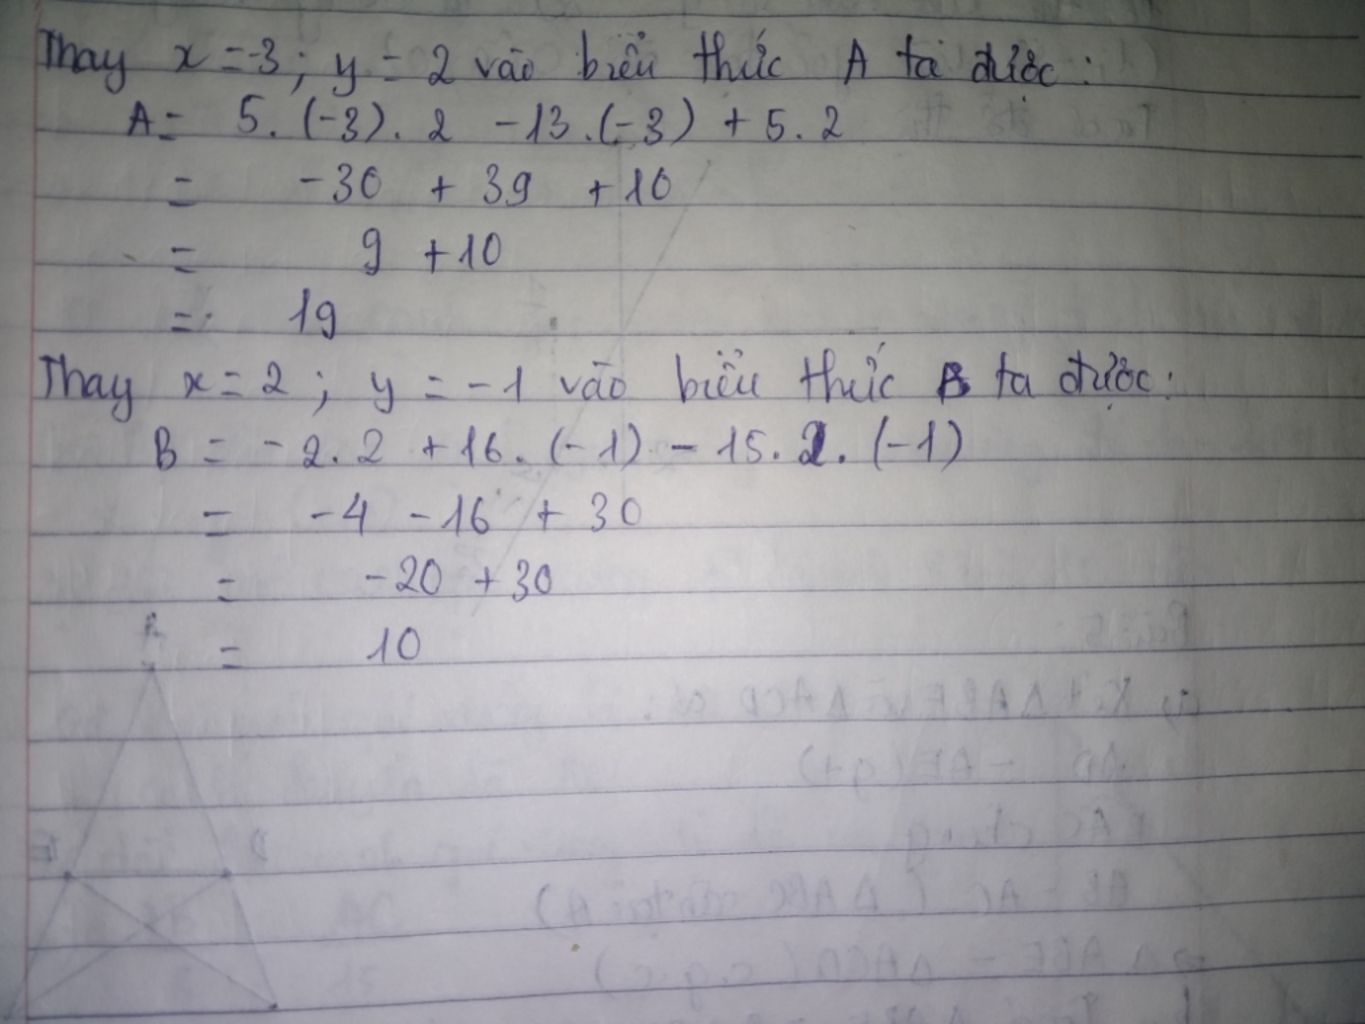 Thay x = -3 ; y = 2 vào biểu thức A ta được :
A = 5 . (-3) . 2 - 13 . (-3) + 5 . 2
= -30 + 39 + 10
= 9 + 10
= 19
Thay x = 2 ; y = -1 vào biểu thức B ta được :
B = -2 . 2 + 16 . (-1) - 15 . 2 . (-1)
= -4 - 16 + 30
= -20 + 30
= 10
A
E D